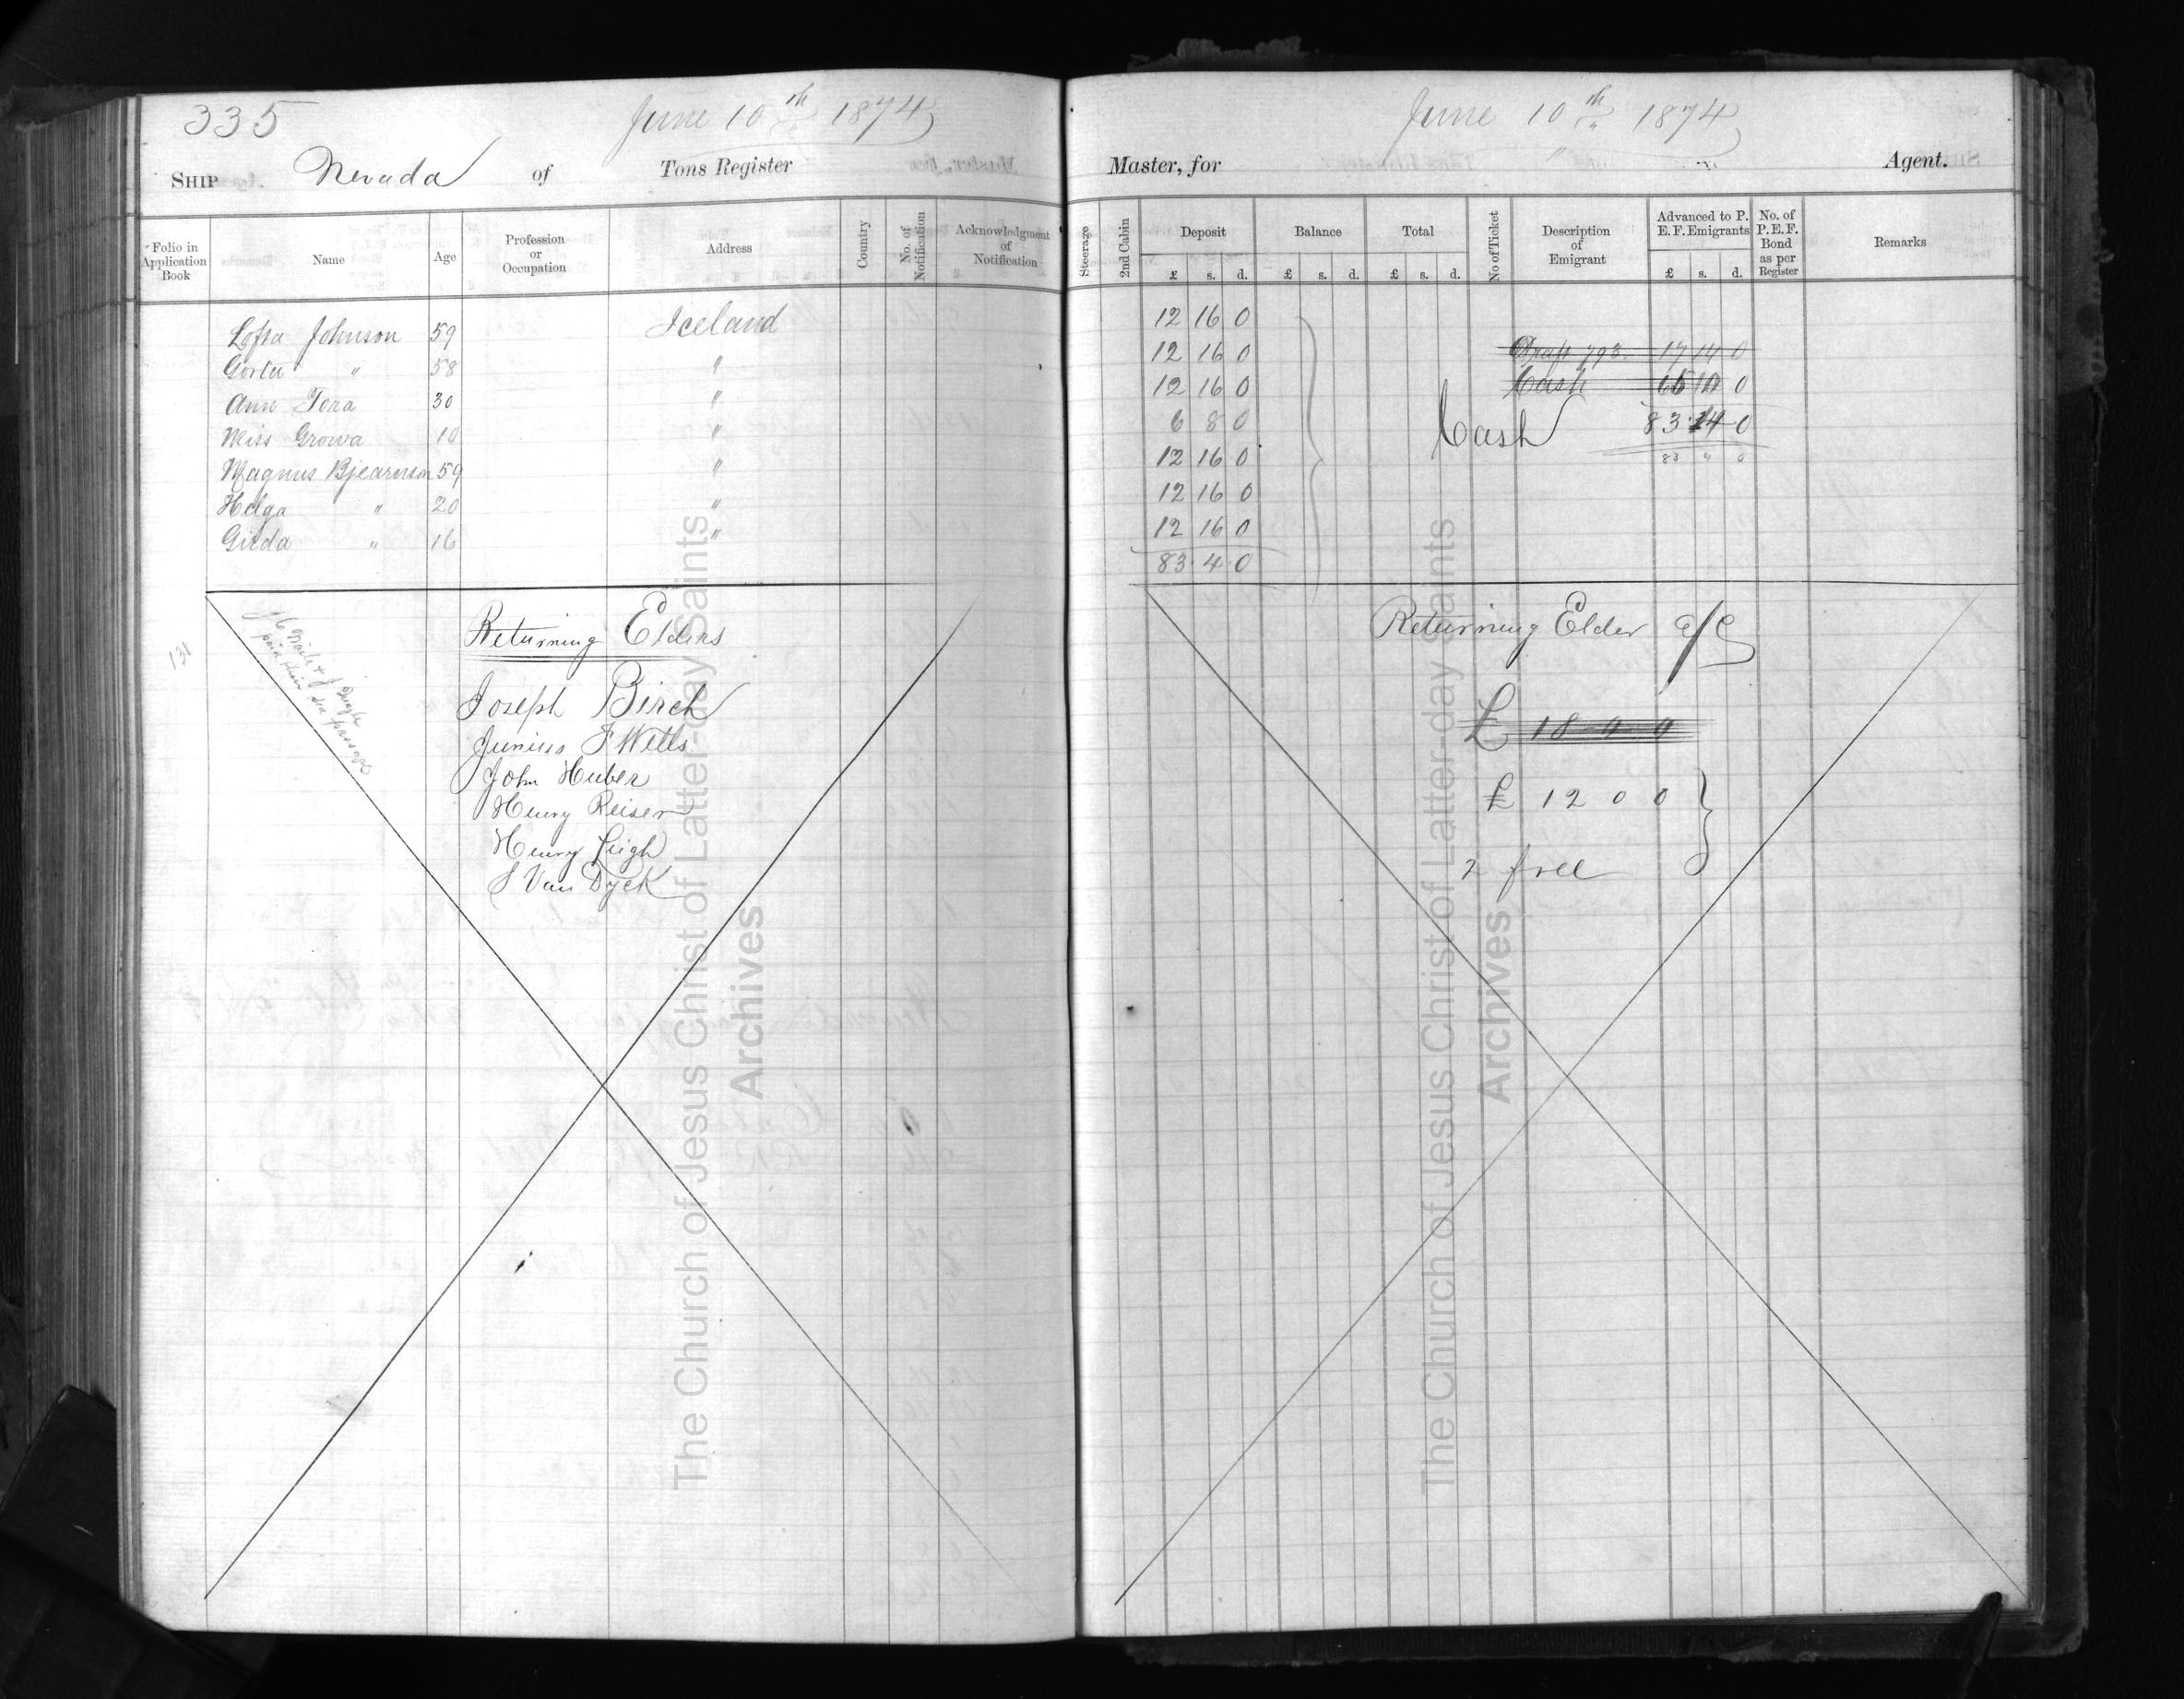 335
June 10th 1874
SHIP Nevada of Tons Register
Folio in Application Book
Name
Age
Profession or Occupation
Address
Country
No. of Notification
Acknowledgment of Notification
Lofsa Johnson 59 Iceland
Gortu " 58 "
Ann Tora 30 "
Miss Growa 10 "
Magnus Bjearnson 59 "
Helga " 20 "
Girda " 16 "
131
paid their
passage
Returning Elders
Joseph Birch
Junius F Wells
John Huber
Henry Reiser
Henry Leigh
S Van Dyck
June 10th 1874
Master, for Agent.
Steerage
2nd Cabin
Deposit
£ s. d.
Balance
£ s. d.
Total
£ s. d.
No of Ticket
Description of Emigrant
Advanced to P. E. F. Emigrants
£ s. d.
No. of P. E. F. Bond as per Register
Remarks
12 16 0
12 16 0 Draft 793. 17 14 0
12 16 0 Cash 0
6 8 0 Cash 83 4 0
12 16 0 83 4 0
12 16 0
12 16 0
83 4 0
Returning Elder a/c
£ 18 0 0
£ 12 0 0
2 free
The Church of Jesus Christ of Latter-day Saints
Archives
The Church of Jesus Christ of Latter-day Saints
Archives